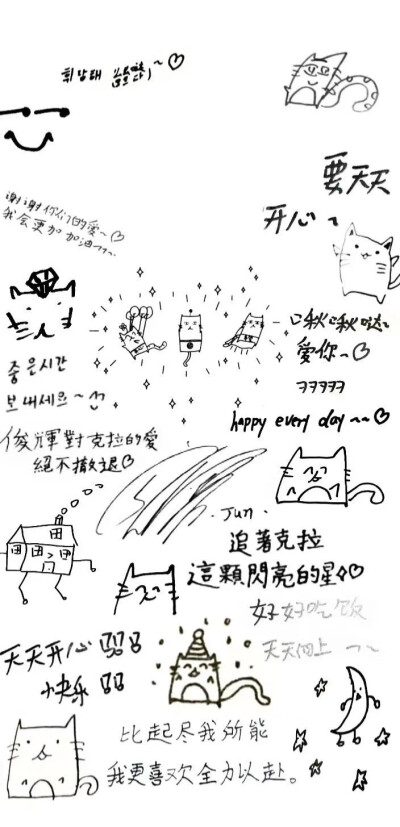 要天天
开心~
谢谢你们的爱~♡
我会更加加油ㅋㅋ~
啾啾哒~
爱你~♡
ㅋㅋㅋㅋㅋ
좋은시간
보내세요~
happy every day ~~♡
俊輝對克拉的愛
絕不撤退♡
·Jun·
追著克拉
這顆閃亮的星☆♡
好好吃饭
天天向上 ~~
天天开心
快乐
比起尽我所能
我更喜欢全力以赴。